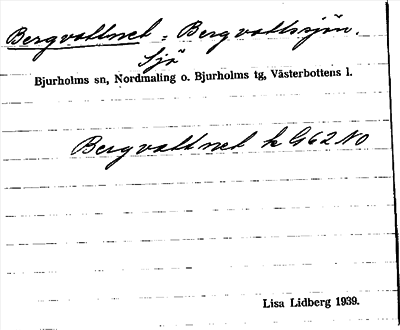 Bergvattnet = Bergvattssjön.
Sjö
Bjurholms sn, Nordmaling o. Bjurholms tg, Västerbottens l.
Bergvattnet k G62 NO
Lisa Lidberg 1939.